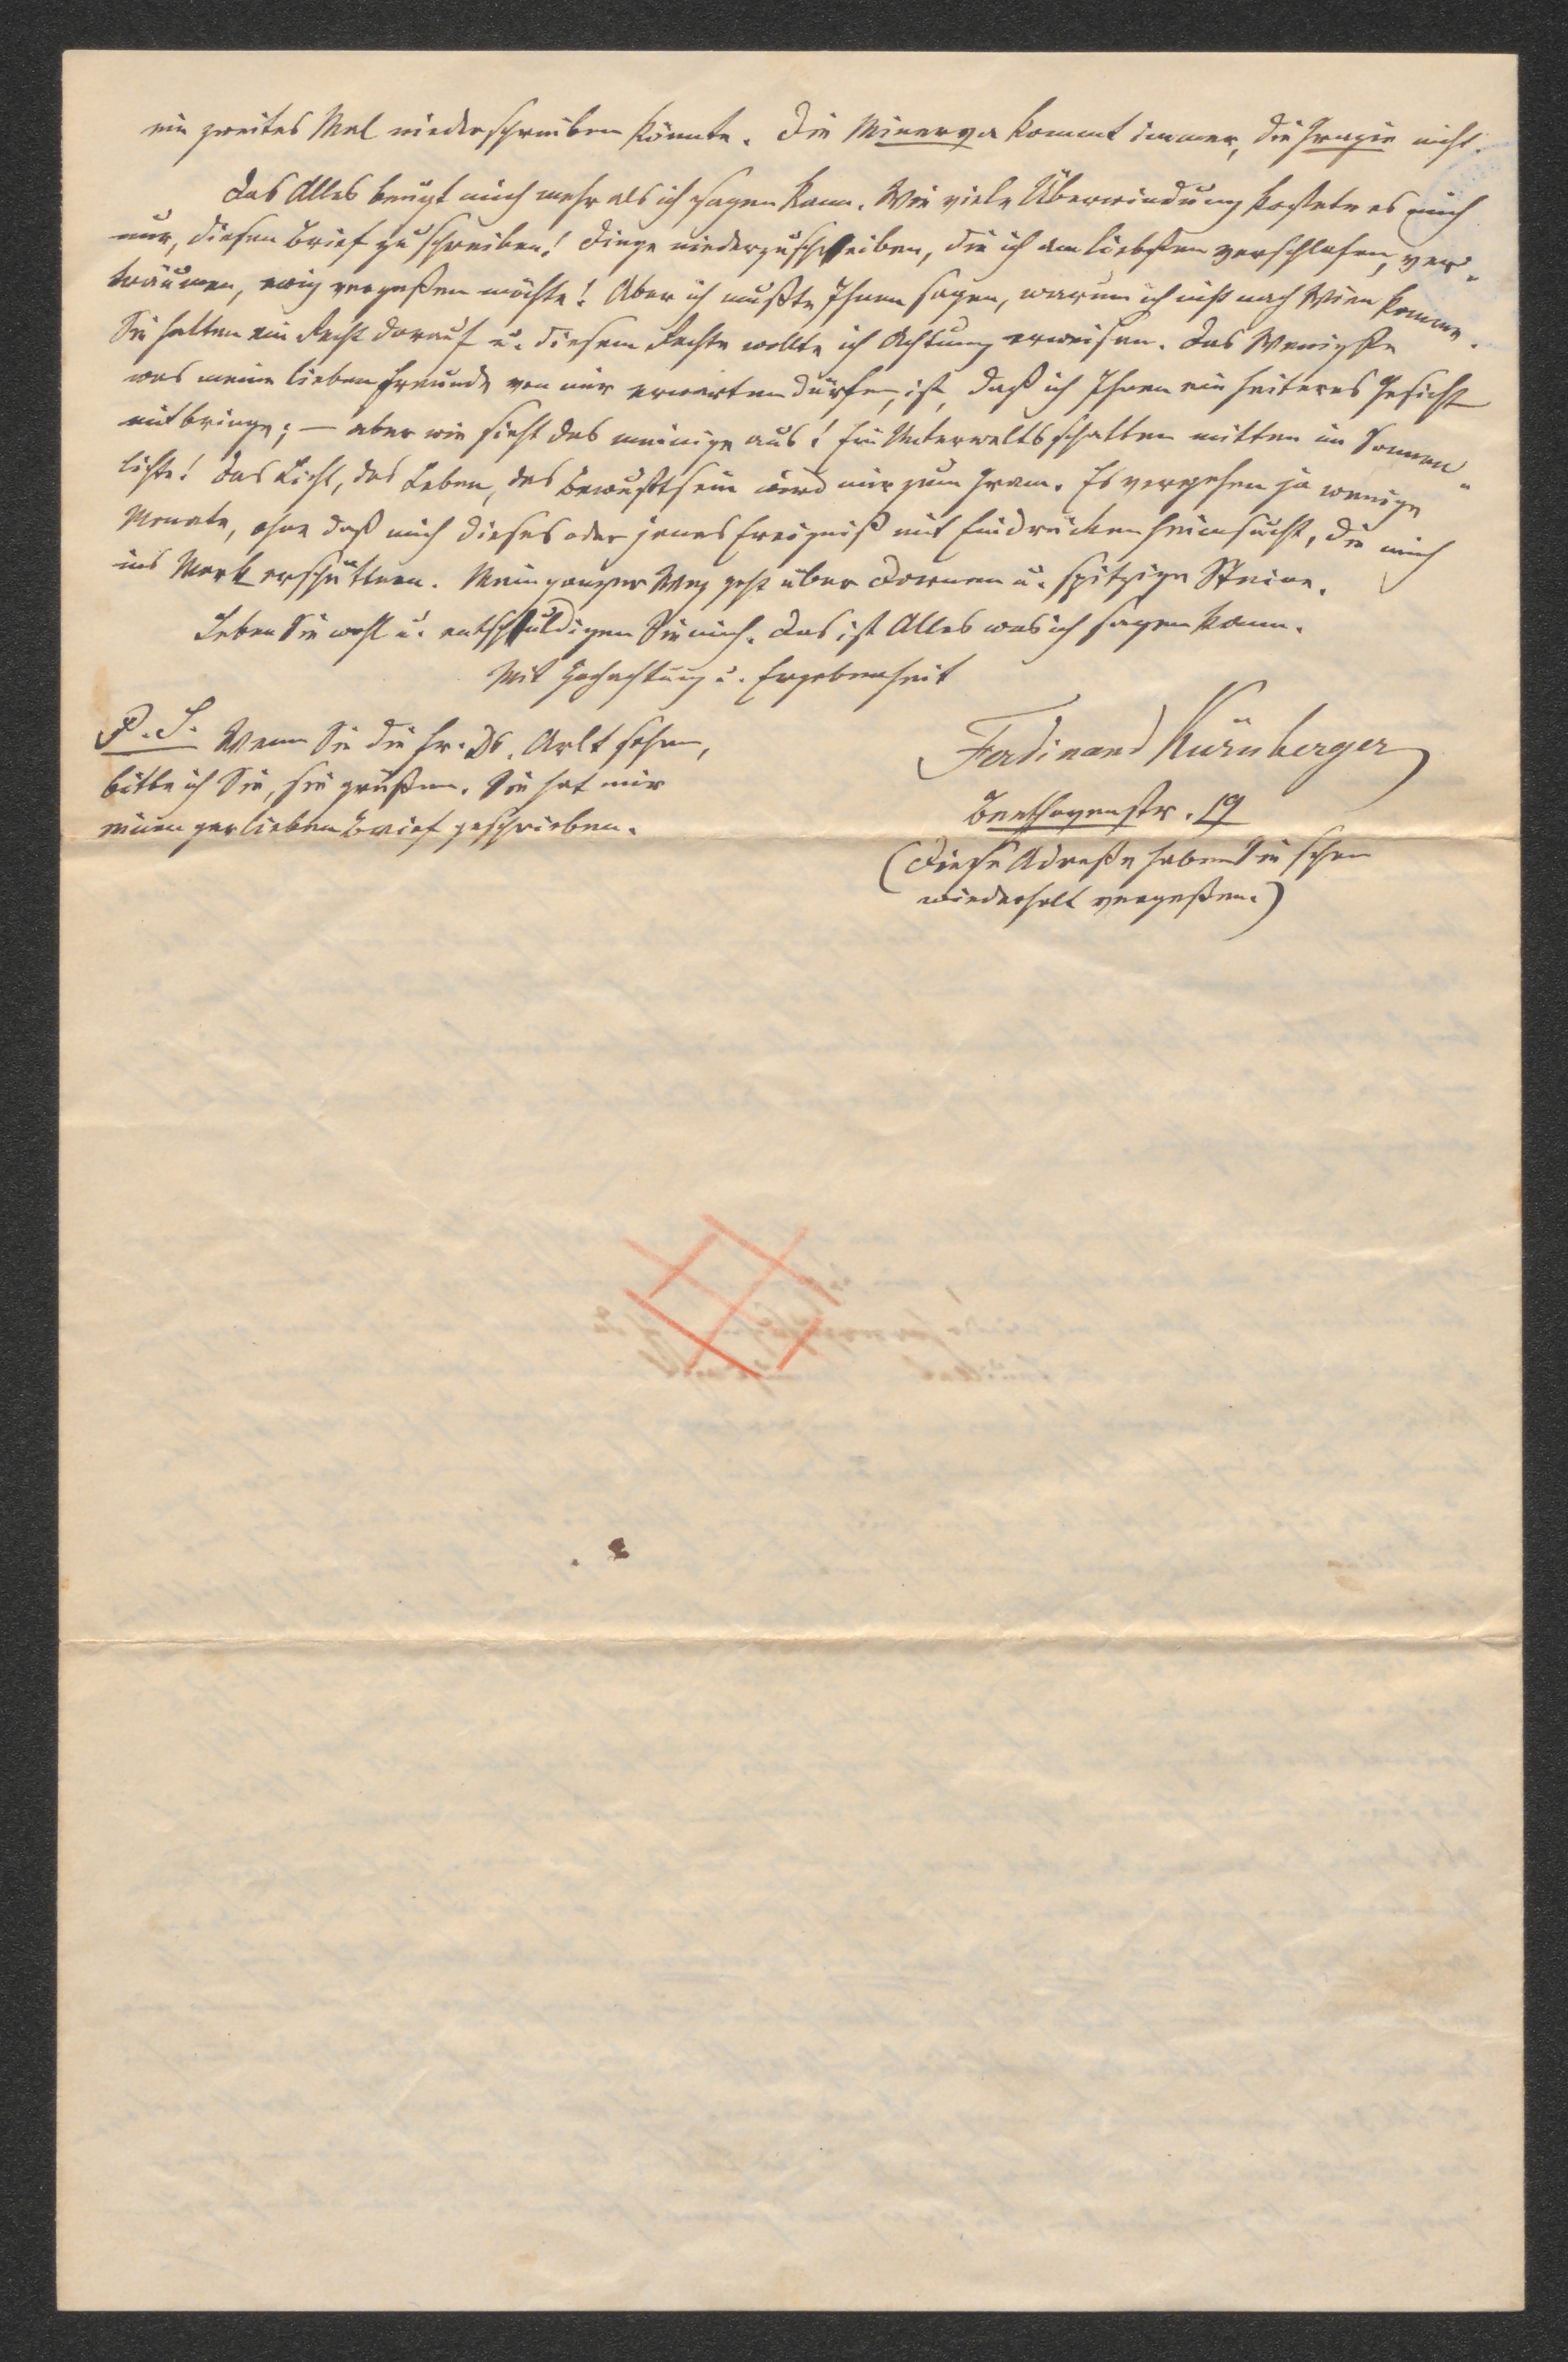 ein zweites Mal niederschreiben könnte. Die Minerva kommt immer, die Grazie nicht.
Das Alles beugt mich mehr als ich sagen kann. Wie viele Überwindung kostete es mich
nur, diesen Brief zu schreiben! Dinge niederzuschreiben, die ich am liebsten verschlafen, ver-
träumen, ewig vergeßen möchte! Aber ich mußte Ihnen sagen, warum ich nicht nach Wien komme.
Sie hatten ein Recht darauf u. diesem Rechte wollte ich Achtung erweisen. Das Wenigste
was meine lieben Freunde von mir erwarten dürfen, ist, daß ich Ihnen ein heiteres Gesicht
mitbringe; — aber wie sieht das meinige aus! Ein Unterweltsschatten mitten im Sonnen-
lichte! Das Licht, das Leben, das Bewußtsein wird mir zum Gram. Es vergehen ja wenige
Monate, ohne daß mich dieses oder jenes Ereigniß mit Eindrücken heimsucht, die mich
ins Mark erschüttern. Mein ganzer Weg geht über Dornen u. spitzige Steine.
Leben Sie wohl u. entschuldigen Sie mich. Das ist Alles was ich sagen kann.
Mit Hochachtung u. Ergebenheit
Ferdinand Kürnberger
Beethovenstr. 19
(Diese Adreße haben Sie schon
wiederholt vergeßen.)
P. S. Wenn Sie die Fr. Dr. Arlt sehen,
bitte ich Sie, sie grüßen. Sie hat mir
einen gar lieben Brief geschrieben.